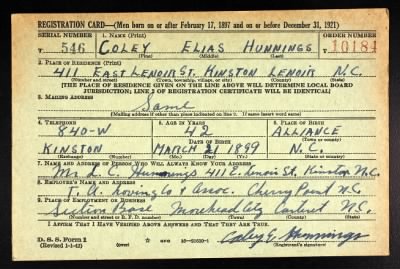 REGISTRATION CARD—(Men born on or after February 17, 1897 and on or before December 31, 1921)
SERIAL NUMBER 1. NAME (Print) ORDER NUMBER
T 546 COLEY ELIAS HUNNINGS T 10184
(First) (Middle) (Last)
2. PLACE OF RESIDENCE (Print)
411 EAST LENOIR ST. KINSTON LENOIR N.C.
(Number and street) (Town, township, village, or city) (County) (State)
[THE PLACE OF RESIDENCE GIVEN ON THE LINE ABOVE WILL DETERMINE LOCAL BOARD
JURISDICTION; LINE 2 OF REGISTRATION CERTIFICATE WILL BE IDENTICAL]
3. MAILING ADDRESS
Same
(Mailing address if other than place indicated on line 2. If same insert word same)
4. TELEPHONE 5. AGE IN YEARS 6. PLACE OF BIRTH
840-W 42 ALLIANCE
DATE OF BIRTH (Town or county)
KINSTON MARCH 21 1899 N.C.
(Exchange) (Number) (Mo.) (Day) (Yr.) (State or country)
7. NAME AND ADDRESS OF PERSON WHO WILL ALWAYS KNOW YOUR ADDRESS
Mrs. L. C. Hunnings 411 E. Lenoir St., Kinston N.C.
8. EMPLOYER'S NAME AND ADDRESS
T. A. Loving Co & Assoc. Cherry Point N.C.
9. PLACE OF EMPLOYMENT OR BUSINESS
Section Base Morehead City Carteret N.C.
(Number and street or R. F. D. number) (Town) (County) (State)
I AFFIRM THAT I HAVE VERIFIED ABOVE ANSWERS AND THAT THEY ARE TRUE.
D. S. S. Form 1
(Revised 1-1-42) (over) Coley E. Hunnings
(Registrant's signature)